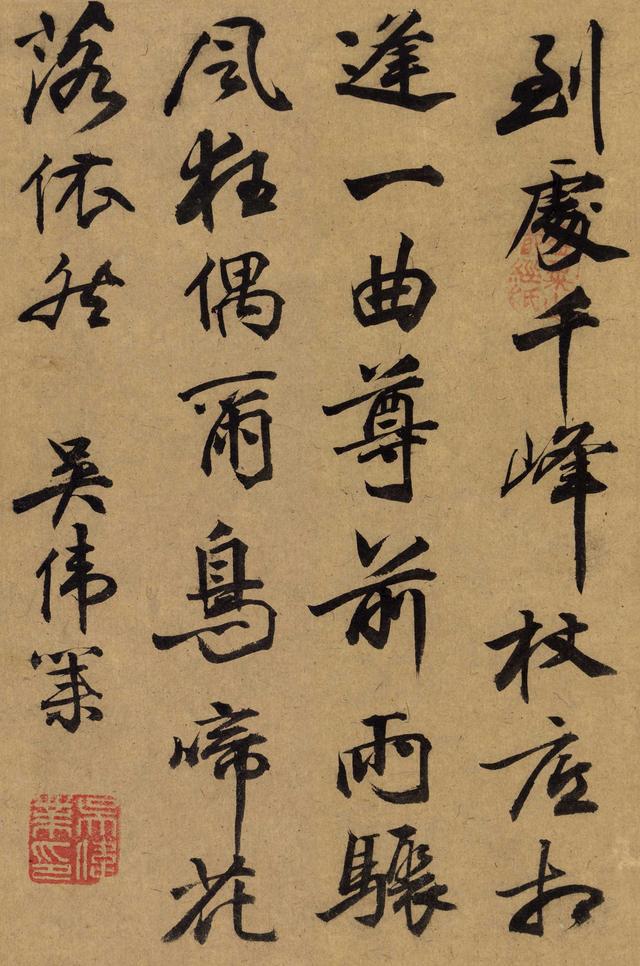 到處千峰杖底相
逢一曲尊前雨驟
風狂偶爾鳥啼花
落依然
吳偉業
吳偉業印